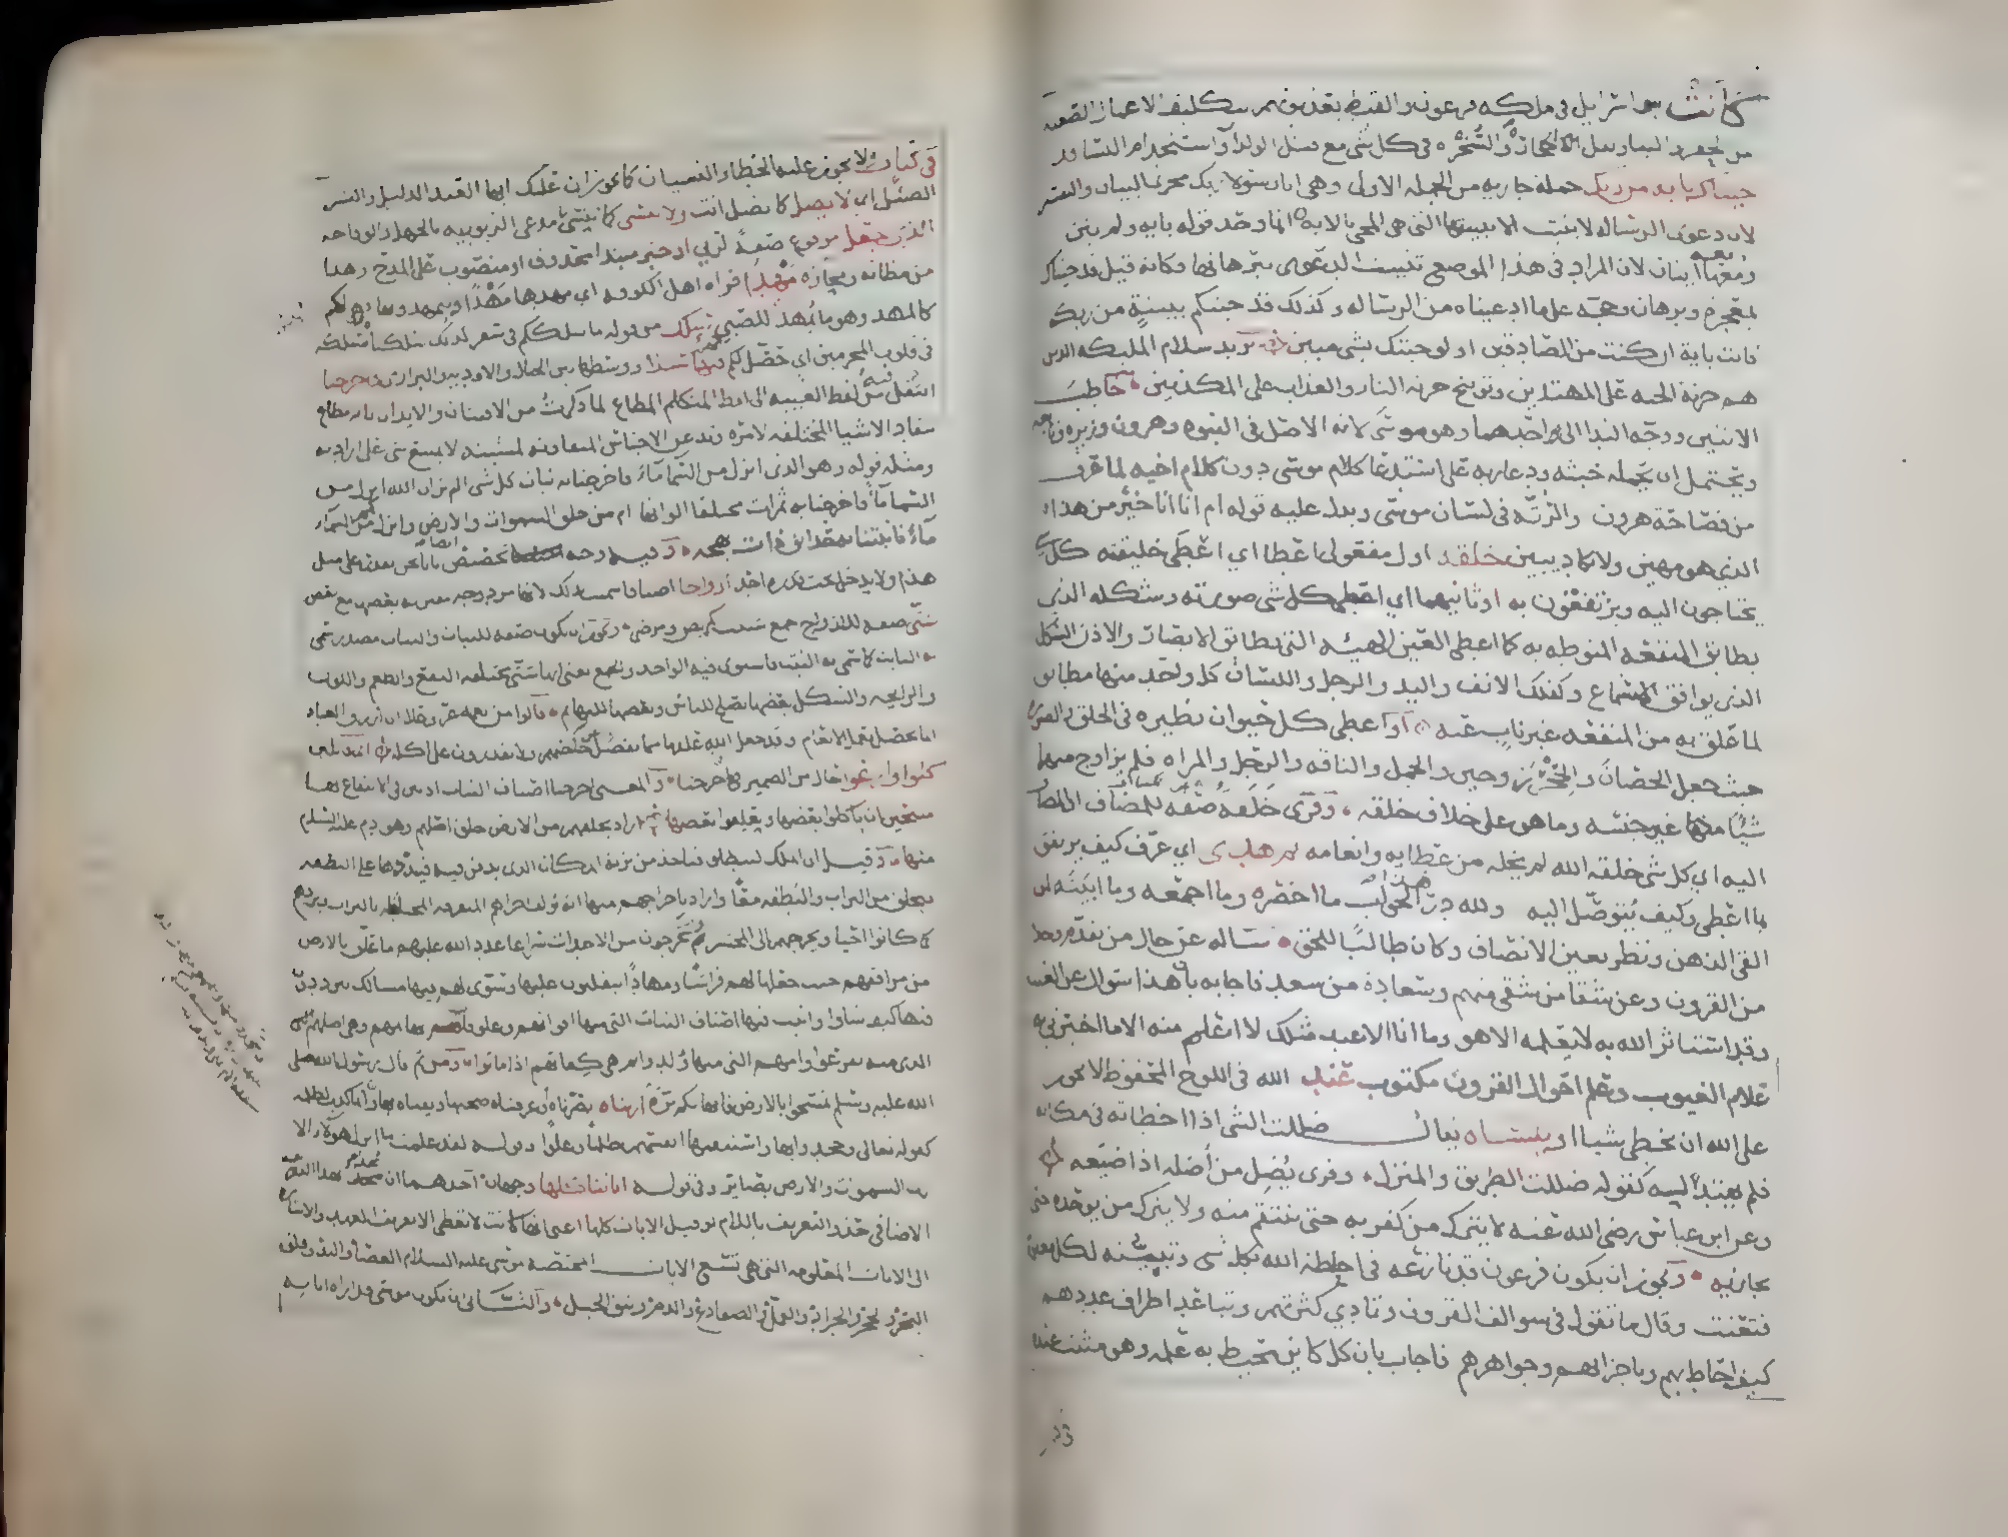 كانت بنو اسرائيل في ملكه فرعون والقبط يعذبونهم بتكليف الاعمال الصعبه
من الحفر والبنا ونقل الحجاره والسخره في كل شي مع قتل الولدان واستخدام النسا قد
جيناك باية من ربك جملة جاريه من الجمله الاولى وهي انا رسولا ربك مجرى البيان والتفسير
لان دعوى الرساله لا تثبت الا ببينتها التي هي المجي بالايه انما وحد قوله باية ولم يثن
ومعه ايتان لان المراد في هذا الموضع تثبيت الدعوى ببرهانها وكانه قيل قد جيناك
بمعجزة وبرهان وحجه على ما ادعيناه من الرساله وكذلك قد جيتكم ببينة من ربكم
فات باية ان كنت من الصادقين اولو جيتك بشي مبين يريد سلام الملبكه الذين
هم خزنة الجنه على المهتدين وتوبيخ خزنه النار والعذاب على المكذبين خاطب
الاثنين ووجه الندا الى واحدهما وهو موسى لانه الاصل في النبوه وهرون وزيره وتابعه
ويحتمل ان يحمله خبثه ودعارته على استدعا كلام موسى دون كلام اخيه لما عرف
من فصاحة هرون والرتة في لسان موسى ويدل عليه قوله ام انا خير من هذا
الذي هو مهين ولا يكاد يبين خلقه اول مفعولي اعطا اي اعطى خليقته كل شي
يحتاجون اليه ويرتفقون به او ثانيهما اي اعطى كل شي صورته وشكله الذي
يطابق المنفعه المنوطه به كما اعطى العين الهيئه التي تطابق الابصار والاذن الشكل
الذي يوافق الاستماع وكذلك الانف واليد والرجل واللسان كل واحد منها مطابق
لما علق به من المنفعه غير ناب عنه او اعطى كل حيوان نظيره في الخلق والصوره
حيث جعل الحصان والحجر زوجين والجمل والناقه والرجل والمراه فلم يزاوج منها
شيا منها غير جنسه وما هو على خلاف خلقه وقرى خلقه صفه للمضاف او للمضاف
اليه اي كل شي خلقه الله لم يخله من عطايه وانعامه ثم هدى اي عرف كيف يرتفق
بما اعطى وكيف يتوصل اليه ولله در هذا الجواب ما اخصره وما اجمعه وما ابينه لمن
القى الذهن ونظر بعين الانصاف وكان طالبا للحق ساله عن حال من تقدم وخلا
من القرون وعن شقا من شقي منهم وسعادة من سعد فاجابه بان هذا سوال عن الغيب
وقد استاثر الله به لا يعلمه الا هو وما انا الا عبد مثلك لا اعلم منه الا ما اخبرني به
علام الغيوب وعلم احوال القرون مكتوب عند الله في اللوح المحفوظ لا يجوز
على الله ان يخطي شيا او ينساه يقال ضللت الشي اذا اخطاته في مكانه
فلم يهتد اليه كقوله ضللت الطريق والمنزل وقرى يضل من اضله اذا ضيعه
وعن ابن عباس رضي الله عنه لا يترك من كفر به حتى ينتقم منه ولا يترك من يوحده حتى
يجازيه ويجوز ان يكون فرعون قد نازعه في احاطة الله بكل شي وتبيينه لكل معلوم
فتعنت وقال ما تقول في سوالف القرون وتمادي كثرتهم وتباعد اطراف عددهم
كيف احاط بهم وباجزائهم وجواهرهم فاجاب بان كل كاين محيط به علمه وهو مثبت عنده
في كتاب لا يجوز عليه الخطا والنسيان كما يجوزان عليك ايها العبد الذليل والبشر
الضئيل اي لا يضل كما تضل انت ولا ينسى كما تنسى يا مدعي الربوبيه بالجهل والوقاحه
الذي جعل مرفوع صفة لربي او خبر مبتدا محذوف او منصوب على المدح وهذا
من مظانه ومجازه مهدا قراه اهل الكوفه اي مهدها مهدا او يتمهدونها فهي لهم
كالمهد وهو ما يمهد للصبي وسلك من قوله ما سلككم في سقر كذلك سلكناه نسلكه
في قلوب المجرمين اي حصل لكم فيها سبلا ووسطها بين الجبال والاوديه والبراري فاخرجنا
انتقل فيه من لفظ الغيبه الى لفظ المتكلم المطاع لما ذكرت من الافتنان والايذان بانه مطاع
تنقاد الاشيا المختلفه لامره وتذعن الاجناس المتفاوته لمشيته لا يمتنع شي على ارادته
ومثله قوله وهو الذي انزل من السما ماء فاخرجنا به نبات كل شي الم تر ان الله انزل من
السما ماء فاخرجنا به ثمرات مختلفا الوانها ام من خلق السموات والارض وانزل لكم من السماء
ماء فانبتنا به حدائق ذات بهجه وفيه وجه تخصيص ايضا بانا نحن نقدر على مثل
هذا ولا يدخل تحت قدره احد ازواجا اصنافا سميت بذلك لانها مزدوجه مقترنه بعضها مع بعض
شتى صفه للازواج جمع شتيت كمريض ومرضى ويجوز ان يكون صفه للنبات والنبات مصدر سمي
به النابت كما سمي به النبت فاستوى فيه الواحد والجمع يعني انها شتى مختلفه النفع والطعم واللون
والرايحه والشكل بعضها يصلح للناس وبعضها للبهايم قالوا من نعمه عز وعلا ان ارزاق العباد
انما تحصل بعمل الانعام وقد جعل الله علفها مما يفضل عن حاجتهم ولا يقدرون على اكله اي قايلين
كلوا وارعوا حال من الضمير في اخرجنا والمعنى اخرجنا اصناف النبات اذنين في الانتفاع بها
مبيحين ان ياكلوا بعضها ويعلفوا بعضها اراد بخلقهم من الارض خلق اصلهم وهو ادم عليه السلام
منها وقيل ان الملك لينطلق فياخذ من تربة المكان الذي يدفن فيه فيبددها على النطفه
فيخلق من التراب والنطفه معا واراد باخراجهم منها انه يولف اجزاهم المتفرقه المختلطه بالتراب ويردهم
كما كانوا احيا ويخرجهم الى المحشر يوم يخرجون من الاجداث سراعا عدد الله عليهم ما علق بالارض
من مرافقهم حيث جعلها لهم فراشا ومهادا يتقلبون عليها وسوى لهم فيها مسالك يترددون
فيها كيف شاوا وانبت فيها اصناف النبات التي منها اقواتهم وعلوفات بهايمهم وهي اصلهم
الذي منه تفرعوا وامهم التي منها ولدوا ثم هي كفاتهم اذا ماتوا ومن ثم قال رسول الله صلى
الله عليه وسلم تمسحوا بالارض فانها بكم بره اريناه بصرناه او عرفناه صحتها ويقناه بها وانما كذب لظلمه
كقوله تعالى وجحدوا بها واستيقنتها انفسهم ظلما وعلوا وقوله لقد علمت ما انزل هولا الا
رب السموت والارض بصاير وفي قوله اياتنا كلها وجهان احدهما ان يحذى بهذا التعريف
الاضافي حذو التعريف باللام لو قيل الايات كلها اعني انها كانت لا تعطى الا تعريف العهد والاشاره
الى الايات المعلومه التي هي تسع الايات المختصه بموسى عليه السلام العصا واليد وفلق
البحر والحجر والجراد والقمل والضفادع والدم ونتق الجبل والثاني ان يكون موسى قد اراه اياته